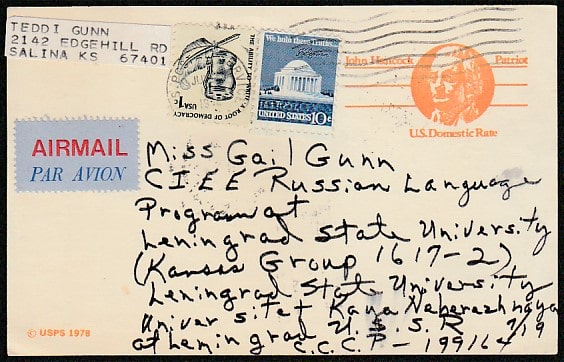 TEDDI GUNN
2142 EDGEHILL RD
SALINA KS 67401
THE ABILITY TO WRITE. A ROOT OF DEMOCRACY
USA 1c
We hold these Truths...
UNITED STATES 10c
John Hancock
Patriot
U.S. Domestic Rate
AIRMAIL
PAR AVION
Miss Gail Gunn
CIEE Russian Language
Program at
Leningrad State University
(Kansas Group 1617-2)
Leningrad State University
Universitet Kaya Naberezhnaya
at Leningrad U.S.S.R. 7/9
C.C.C.P - 199164
© USPS 1978